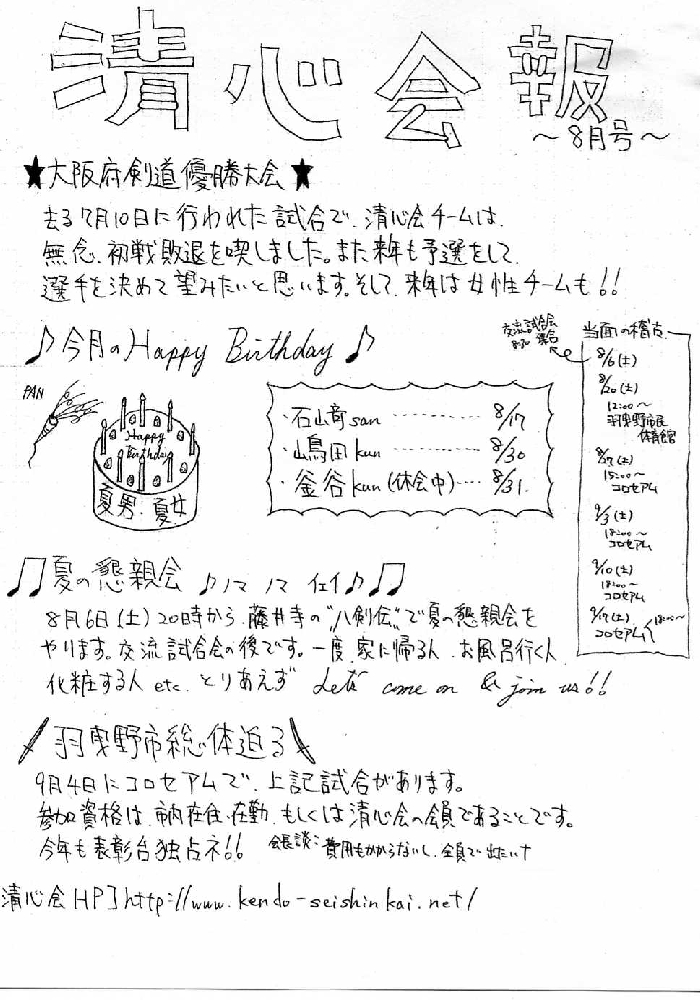 清心会報
～8月号～
★大阪府剣道優勝大会★
去る7月10日に行われた試合で、清心会チームは、
無念、初戦敗退を喫しました。また来年も予選をして、
選手を決めて望みたいと思います。そして、来年は女性チームも!!
♪今月のHappy Birthday♪
PAN
Happy
Birthday
夏男・夏女
・石山奇san ………… 8/17
・嶋田kun ………… 8/30
・釜谷kun(休会中)… 8/31.
交流試合会
集合
当面の稽古
8/6(土)
8/20(土)
12:00～
羽曳野市民
体育館
8/27(土)
15:00～
コロセアム
9/3(土)
18:00～
コロセアム
9/10(土)
18:00～
コロセアム
9/17(土)
18:00～
コロセアム
♫夏の懇親会 ♪ノマ ノマ イェイ♪♫
8月6日(土)20時から、藤井寺の"八剣伝"で夏の懇親会を
やります。交流試合会の後です。一度、家に帰る人、お風呂行く人、
化粧する人etc. とりあえず Let's come on & join us!!
羽曳野市総体迫る
9月4日にコロセアムで、上記試合があります。
参加資格は、市内在住、在勤、もしくは清心会の会員であることです。
今年も表彰台独占ネ!! 会長談:費用もかからないし、全員で出たい
清心会HP]http://www.kendo-seishinkai.net/